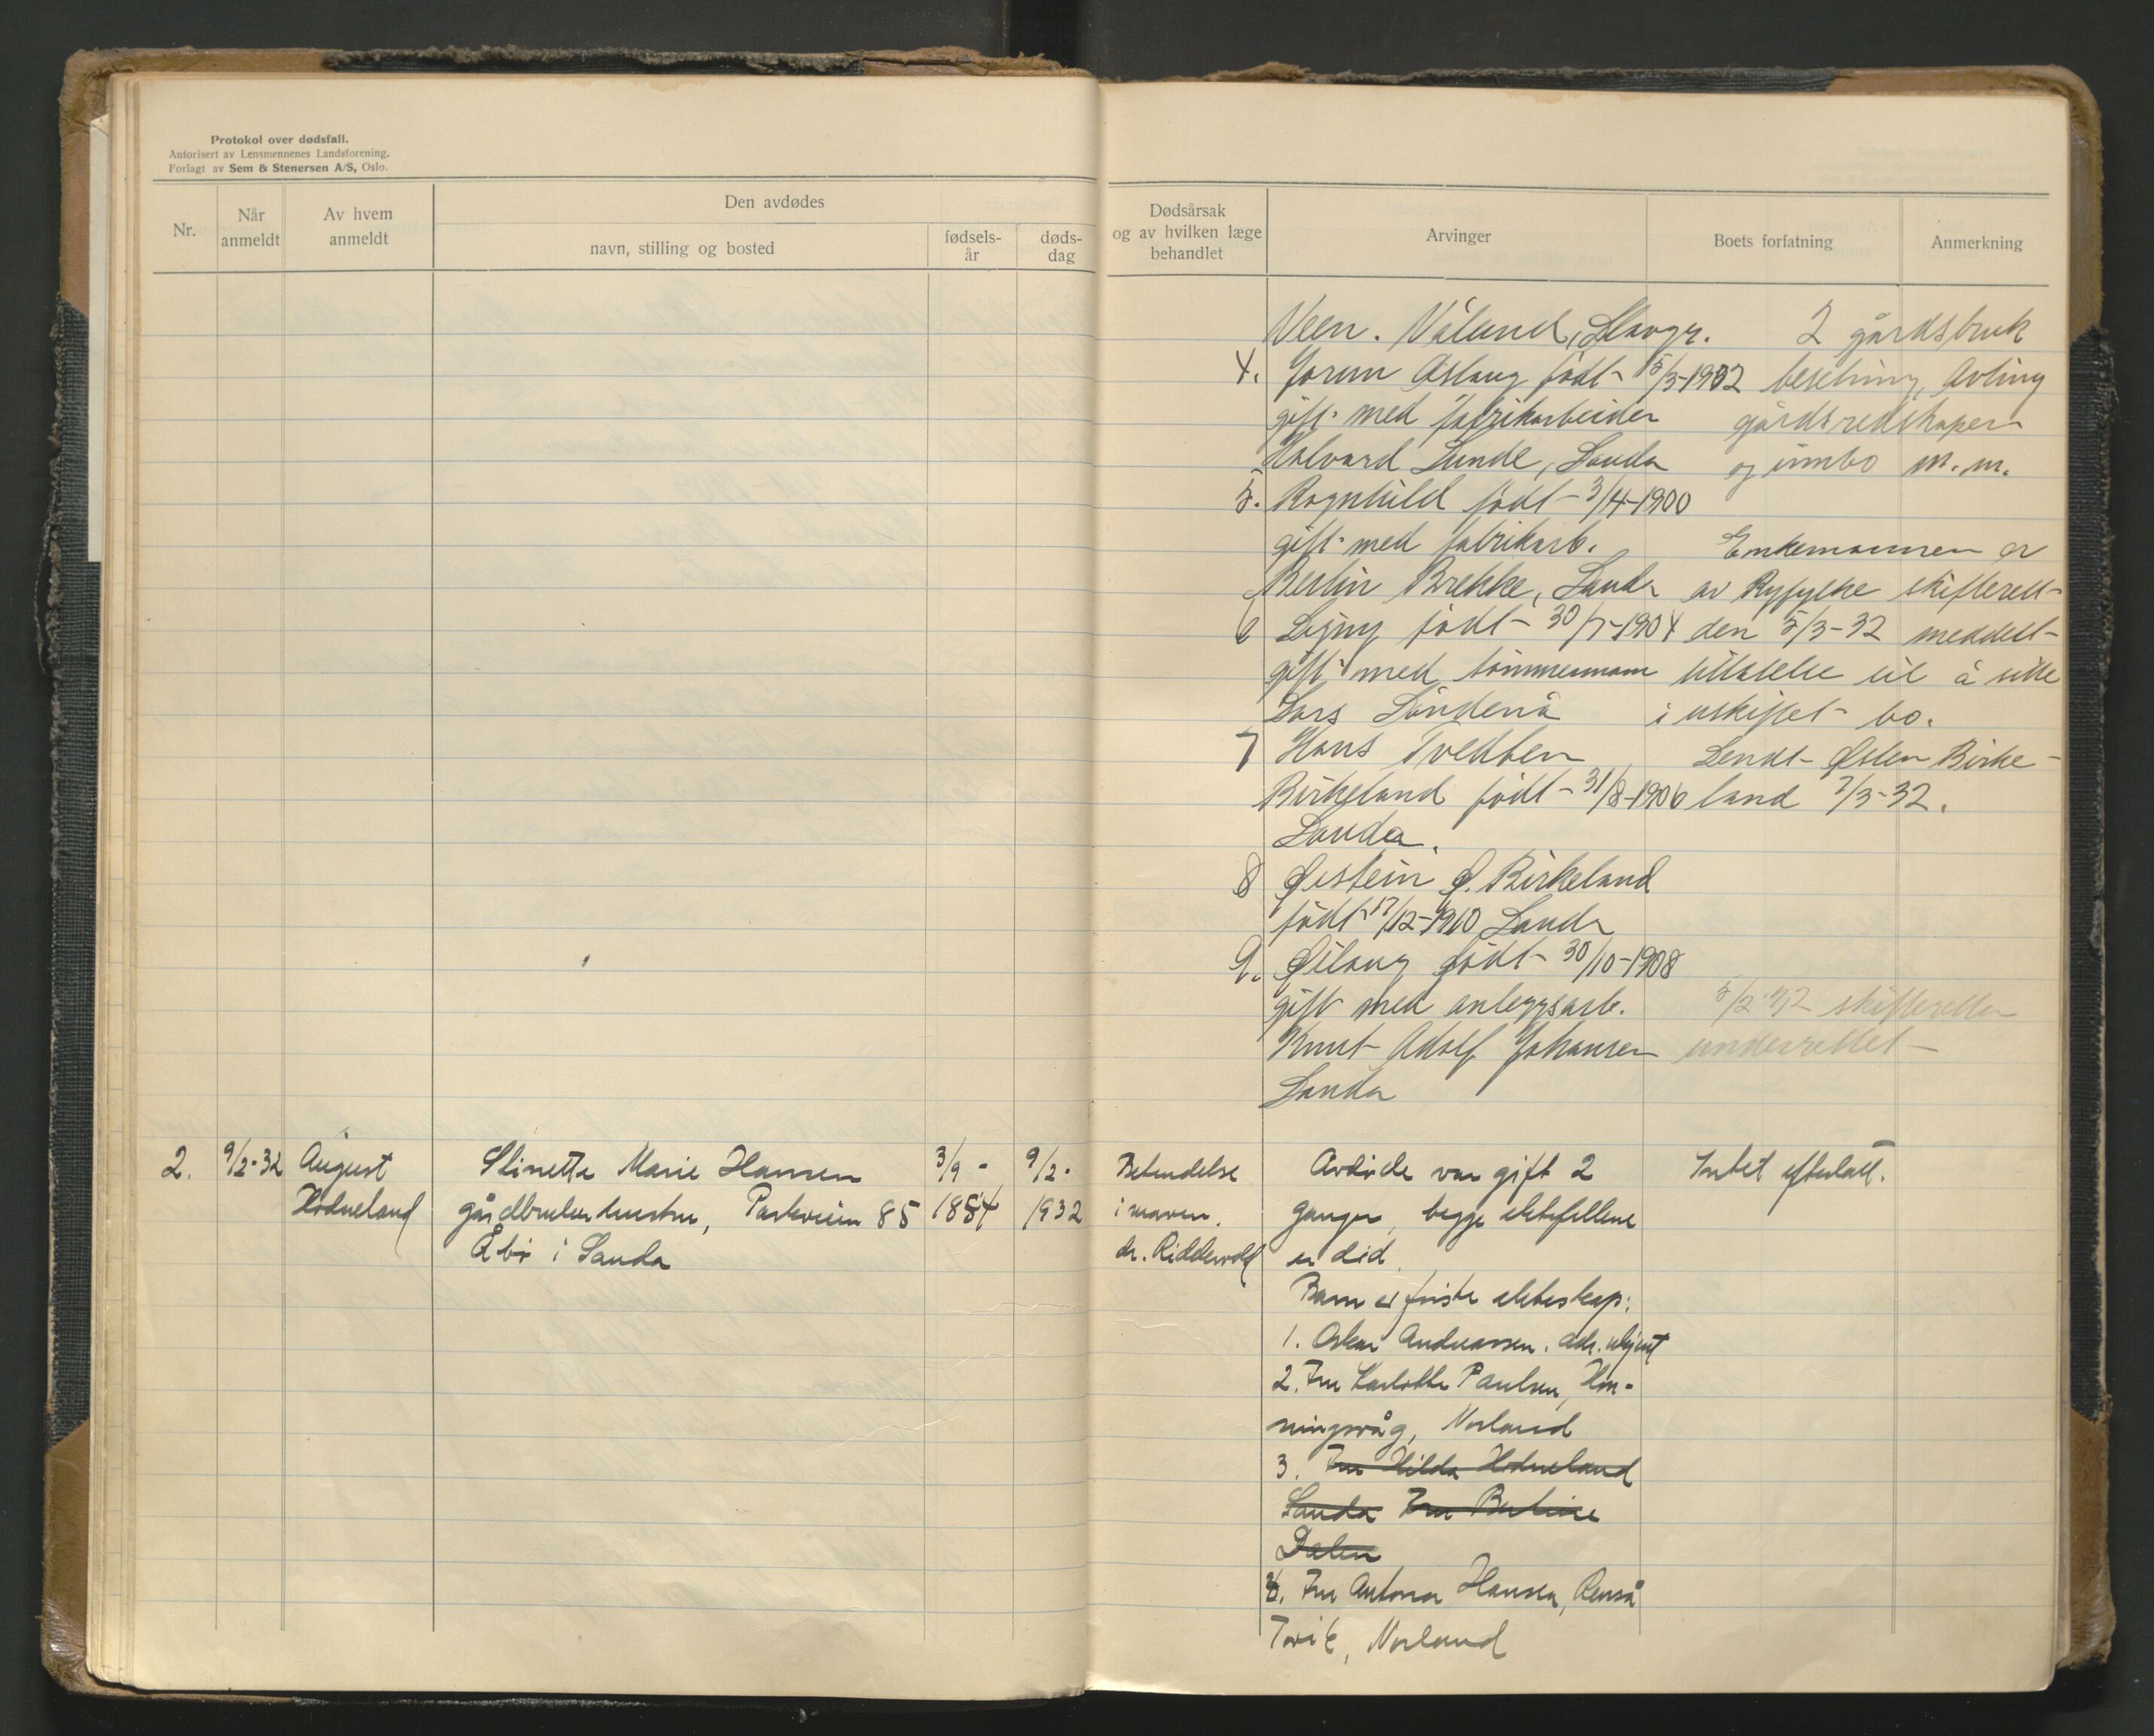 Protokol over dødsfall.
Autorisert av Lensmennenes Landsforening.
Forlagt av Sem & Stenersen A/S, Oslo.
Nr.
Når anmeldt
Av hvem anmeldt
Den avdødes
navn, stilling og bosted
fødsels-år
døds-dag
Dødsårsak og av hvilken læge behandlet
Arvinger
Boets forfatning
Anmerkning
Veen. Våland, Stavgr.
4. Jorun Aslaug født 15/3-1902
gift med fabrikarbeider
Halvard Lunde, Sauda
5. Ragnhild født 3/4-1900
gift med fabrikarb.
Bertin Brekke, Sauda
6 Signy født 30/7-1904
gift med tømmermann
Lars Søndenå
7 Hans Tvedten
Birkeland født 31/8-1906
Sauda.
8 Øistein Ø. Birkeland
født 17/12-1910 Sauda
9. Øilaug født 30/10-1908
gift med anleggsarb.
Knut Adolf Johansen
Sauda
2 gårdsbruk
besetning, Avling
gårdsredskaper
og innbo m.m.
Enkemannen er
av Ryfylke skifterett
den 5/3-32 meddelt
tillatelse til å sitte
i uskiftet bo.
Sendt Østen Birke-
land 7/3-32.
5/2-32 skifteretten
underrettet
2.
9/2-32
August
Hodneland
Stinette Marie Hansen
gårdbrukerhustru, Parkveien 85
Åbø i Sauda
3/9-
1854
9/2-
1932
Betendelse
i maven.
dr. Riddervold
Avdøde var gift 2
ganger, begge ektefellene
er død.
Barn av første ekteskap:
1. Oskar Andreassen. adr. ukjent
2. Fru Karlotte Paulsen, Hon-
ningsvåg, Norland
3. Fru Hilda Hodneland
Sauda Fru Bertine
Dalen
4. Fru Antona Hansen, Renså
Tovik, Norland
Intet efterlatt.